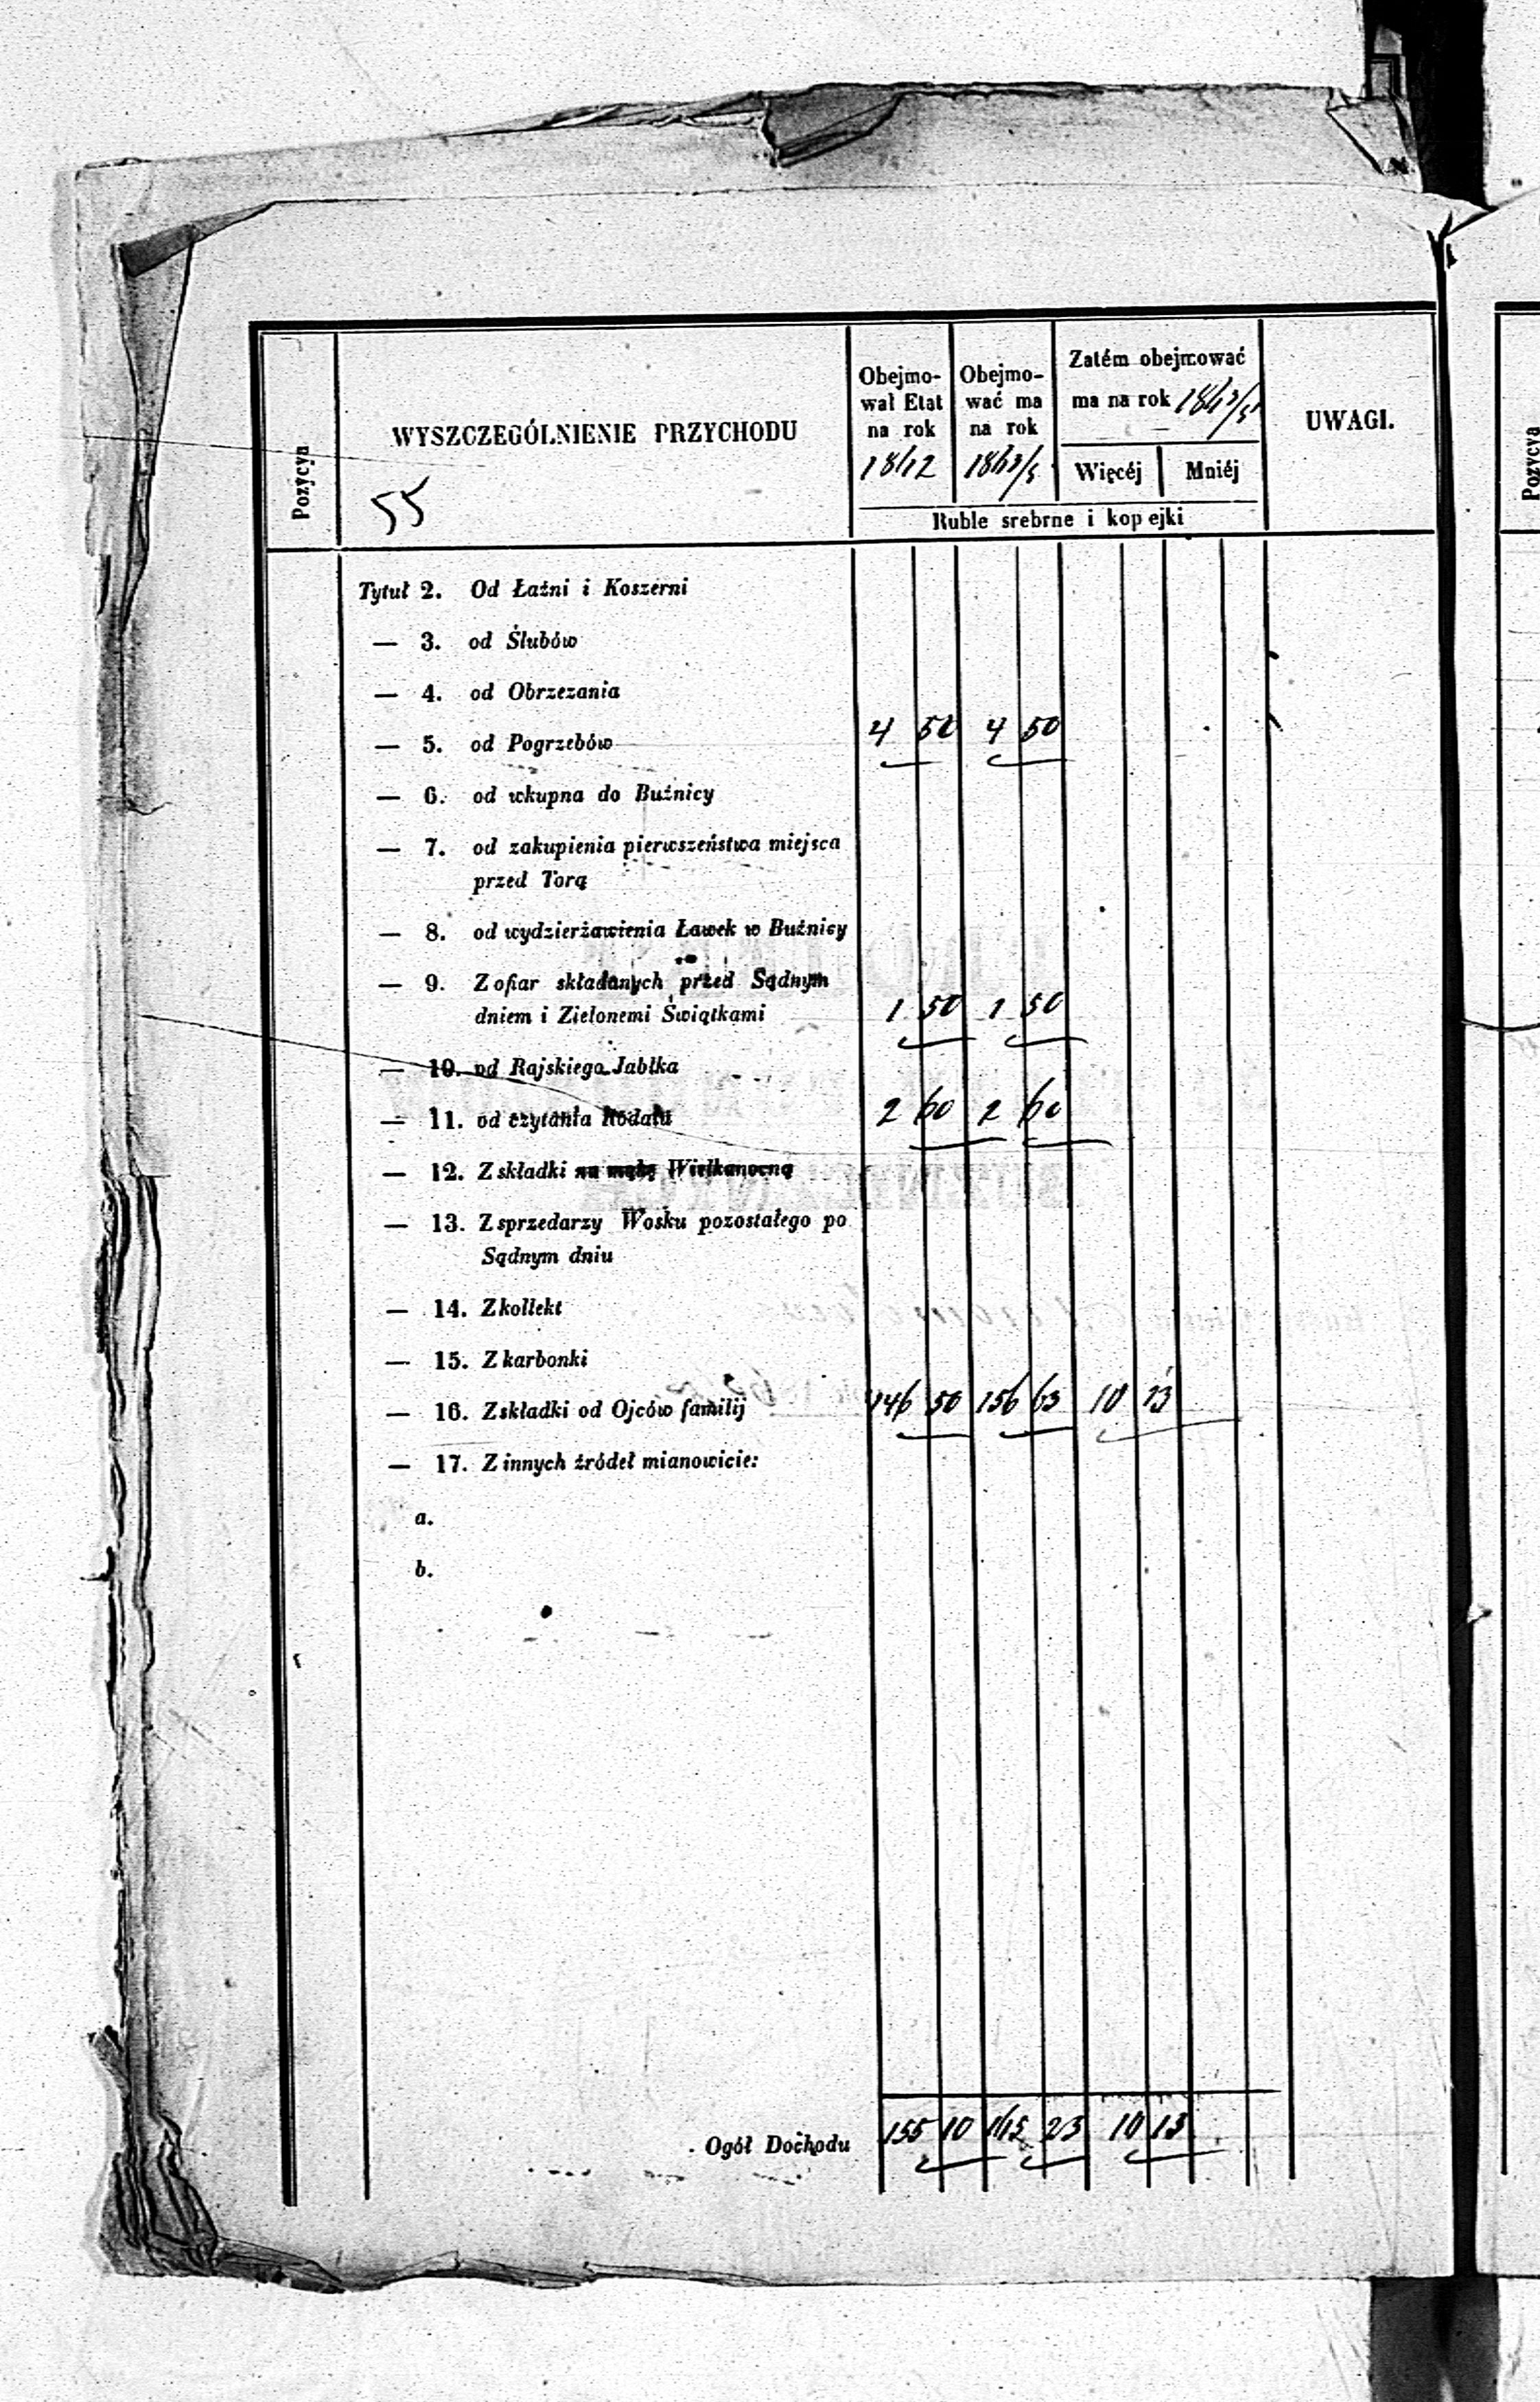 Pozycya
WYSZCZEGÓLNIENIE PRZYCHODU
55
Obejmo-
wał Etat
na rok
Obejmo-
wać ma
na rok
Zatém obejmować
ma na rok
Więcéj Mniéj
Ruble srebrne i kopejki
UWAGI.
Tytuł 2. Od Łaźni i Koszerni
— 3. od Ślubów
— 4. od Obrzezania
— 5. od Pogrzebów 4 50 4 50
— 6. od wkupna do Buźnicy
— 7. od zakupienia pierwszeństwa miejsca
przed Torą
— 8. od wydzierżawienia Ławek w Buźnicy
— 9. Z ofiar składanych przed Sądnym
dniem i Zielonemi Świątkami 1 50 1 50
— 10. od Rajskiego Jabłka
— 11. od czytania Rodału 2 60 2 60
— 12. Z składki na mąkę Wielkanocną
— 13. Z sprzedarzy Wosku pozostałego po
Sądnym dniu
— 14. Z kollekt
— 15. Z karbonki
— 16. Z składki od Ojców familij 146 50 156 63 10 13
— 17. Z innych źródeł mianowicie:
a.
b.
Ogół Dochodu 155 10 165 23 10 13
Pozycya